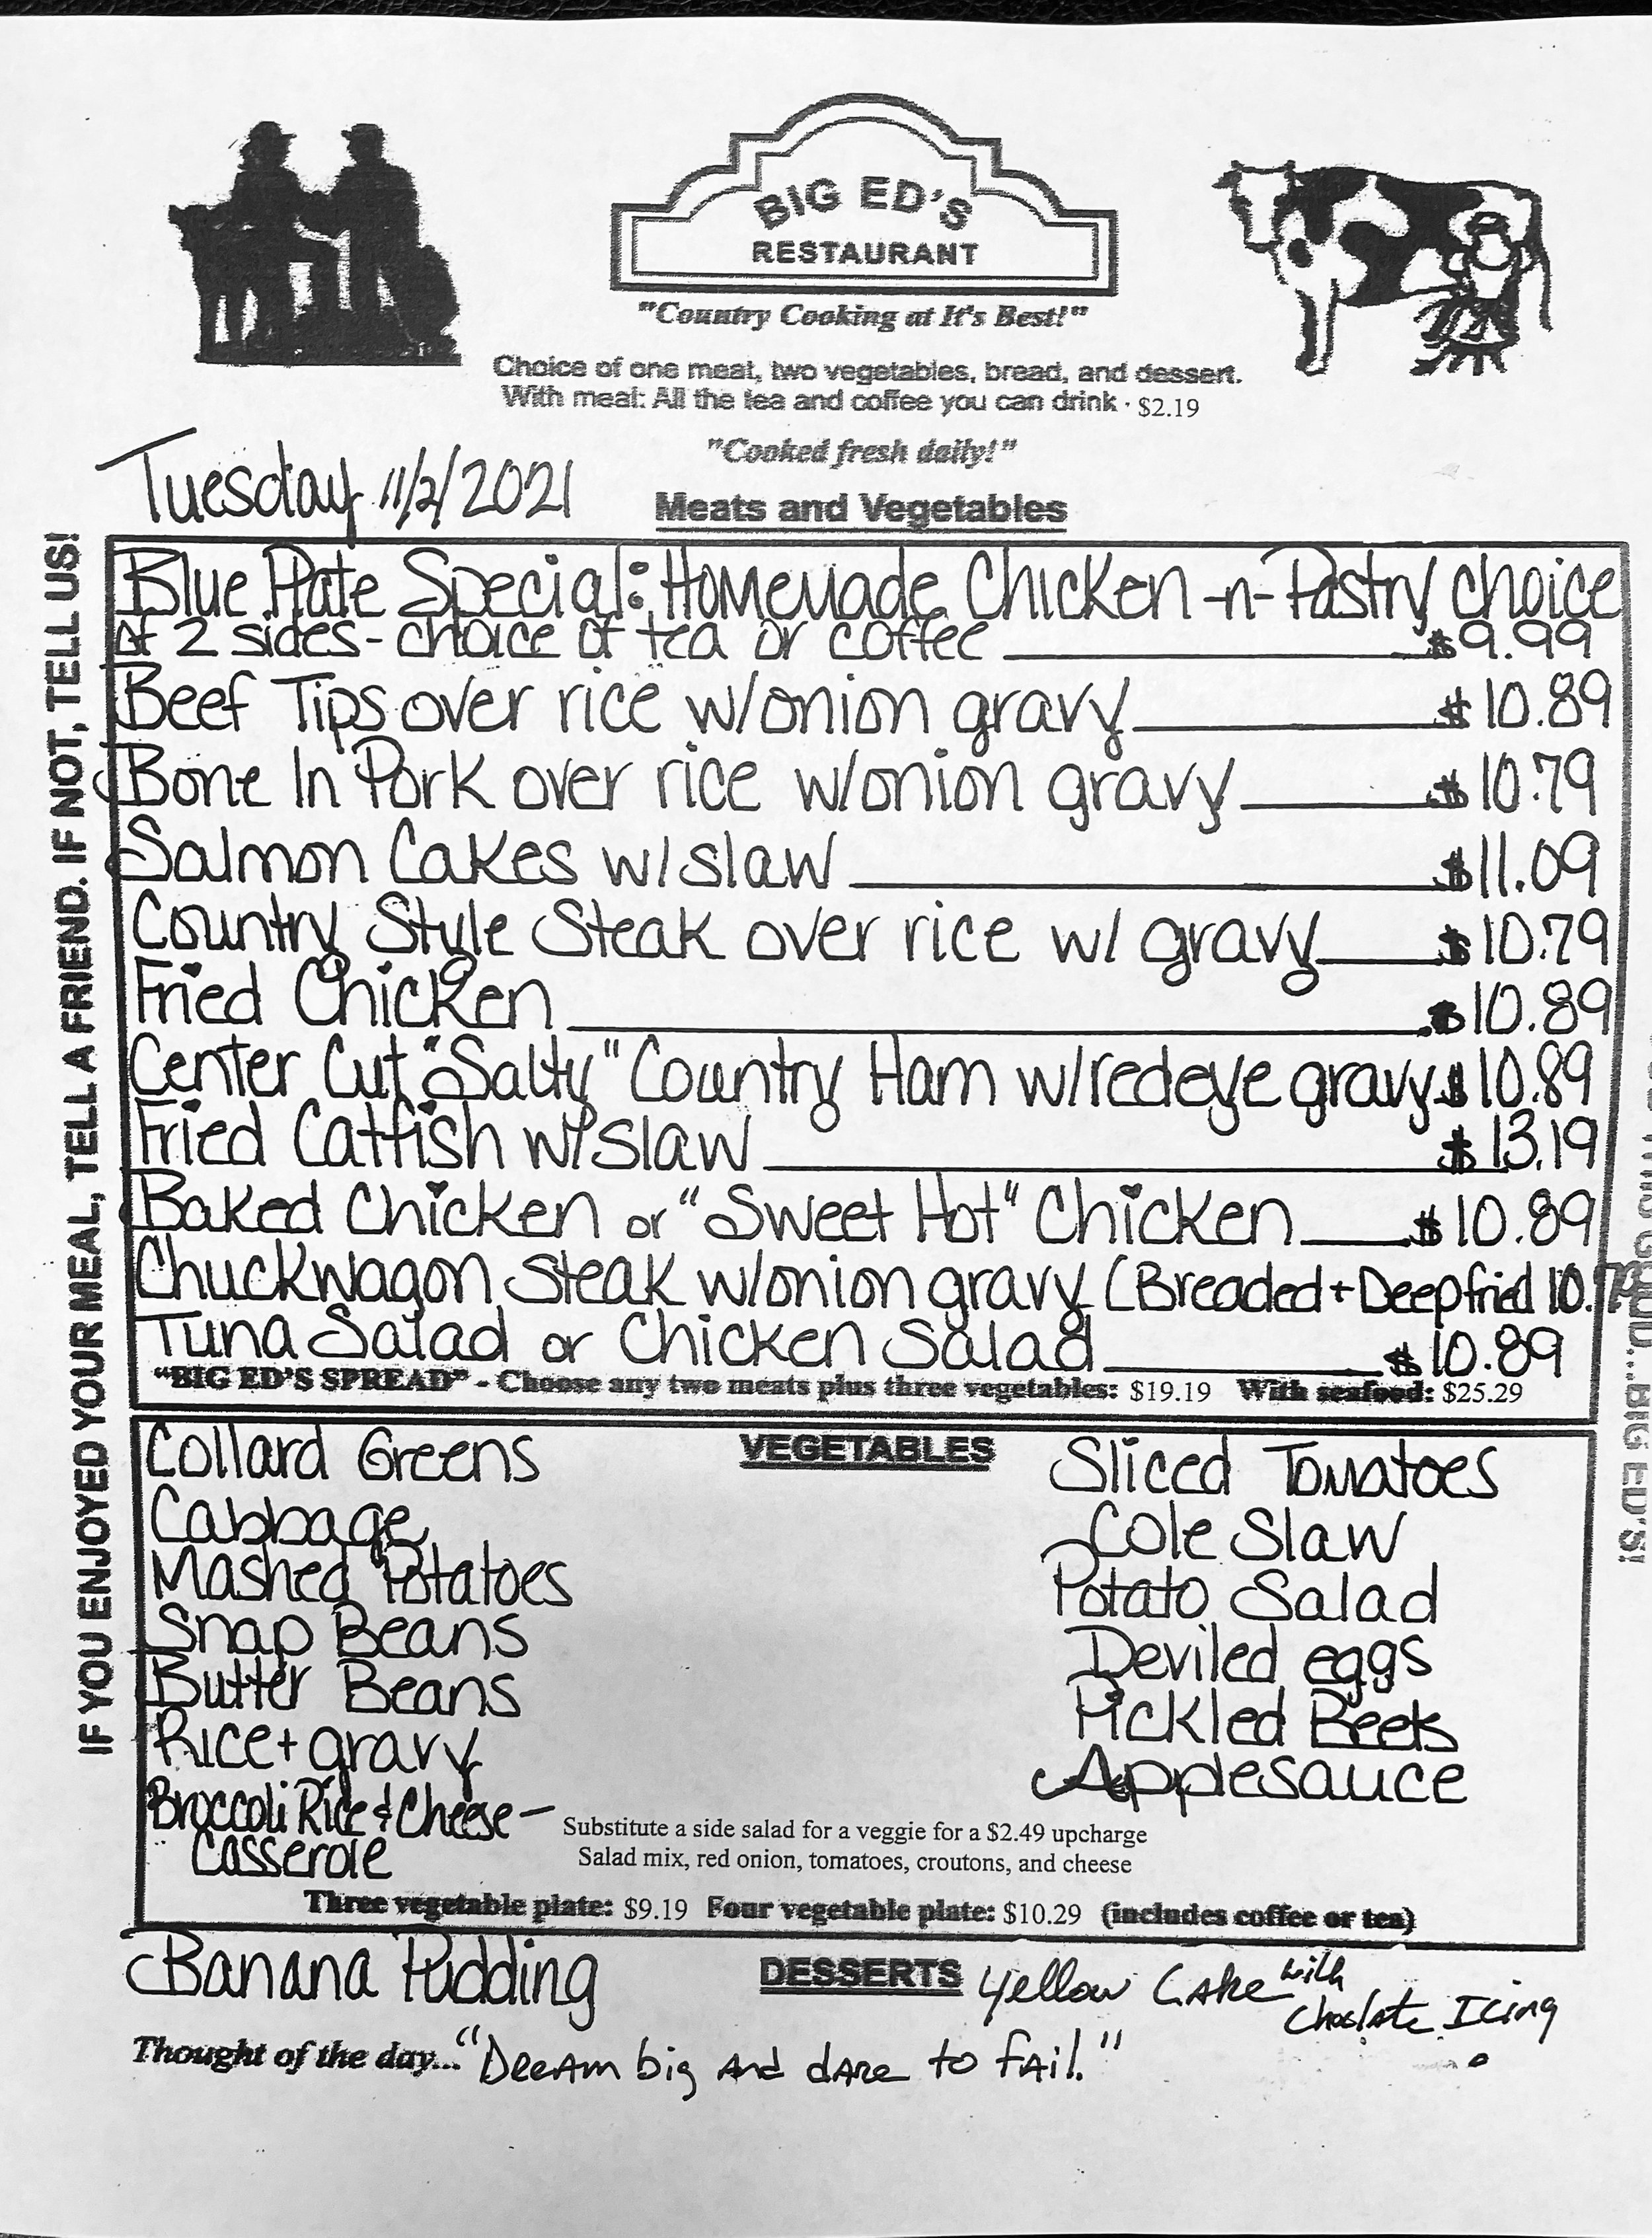 BIG ED'S
RESTAURANT
"Country Cooking at It's Best!"
Choice of one meat, two vegetables, bread, and dessert.
With meal: All the tea and coffee you can drink · $2.19
"Cooked fresh daily!"
Tuesday 11/2/2021
Meats and Vegetables
IF YOU ENJOYED YOUR MEAL, TELL A FRIEND. IF NOT, TELL US!
Blue Plate Special: Homemade Chicken -n- Pastry choice
of 2 sides - choice of tea or coffee $9.99
Beef Tips over rice w/onion gravy $10.89
Bone In Pork over rice w/onion gravy $10.79
Salmon Cakes w/slaw $11.09
Country Style Steak over rice w/ gravy $10.79
Fried Chicken $10.89
Center Cut "Salty" Country Ham w/redeye gravy $10.89
Fried Catfish w/slaw $13.19
Baked Chicken or "Sweet Hot" Chicken $10.89
Chuckwagon Steak w/onion gravy (Breaded + Deepfried 10.79
Tuna Salad or Chicken Salad $10.89
"BIG ED'S SPREAD" - Choose any two meats plus three vegetables: $19.19 With seafood: $25.29
...BIG ED'S!
VEGETABLES
Collard Greens
Cabbage
Mashed Potatoes
Snap Beans
Butter Beans
Rice + gravy
Broccoli Rice & Cheese -
Casserole
Sliced Tomatoes
Cole Slaw
Potato Salad
Deviled eggs
Pickled Beets
Applesauce
Substitute a side salad for a veggie for a $2.49 upcharge
Salad mix, red onion, tomatoes, croutons, and cheese
Three vegetable plate: $9.19 Four vegetable plate: $10.29 (includes coffee or tea)
Banana Pudding
DESSERTS
Yellow Cake with
Choclate Icing
Thought of the day... "Dream big and dare to fail."